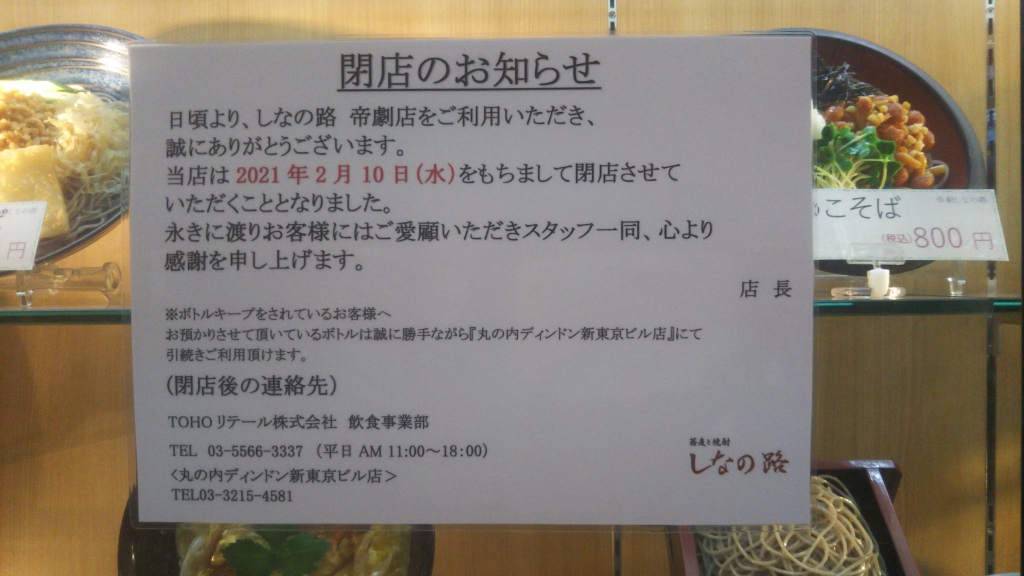 閉店のお知らせ
日頃より、しなの路 帝劇店をご利用いただき、
誠にありがとうございます。
当店は 2021 年 2 月 10 日(水)をもちまして閉店させて
いただくこととなりました。
永きに渡りお客様にはご愛顧いただきスタッフ一同、心より
感謝を申し上げます。
店 長
※ボトルキープをされているお客様へ
お預かりさせて頂いているボトルは誠に勝手ながら『丸の内ディンドン新東京ビル店』にて
引続きご利用頂けます。
(閉店後の連絡先)
TOHO リテール株式会社 飲食事業部
TEL 03-5566-3337 (平日 AM 11:00~18:00)
<丸の内ディンドン新東京ビル店>
TEL03-3215-4581
蕎麦と焼酎
しなの路
円
こそば
(税込)800 円